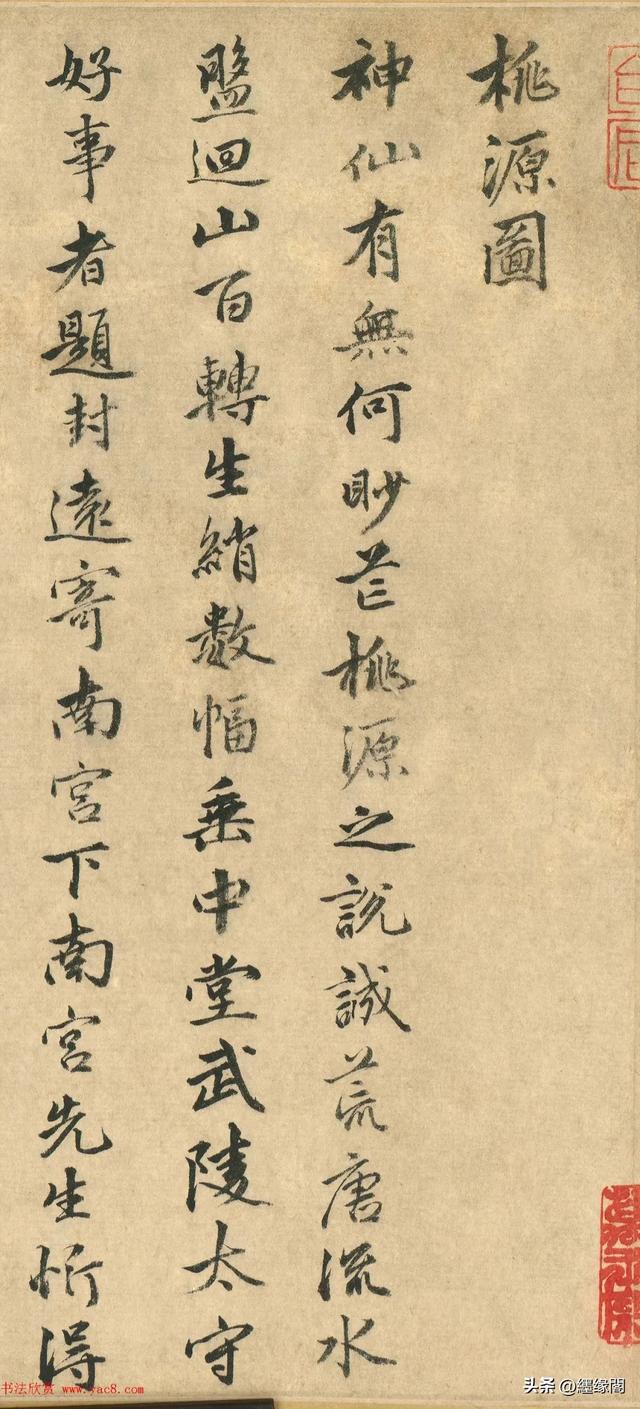 桃源圖
神仙有無何眇芒桃源之說誠荒唐流水
盤迴山百轉生綃數幅垂中堂武陵太守
好事者題封遠寄南宮下南宮先生忻得
书法欣赏 www.yac8.com
头条 @纆缘阁